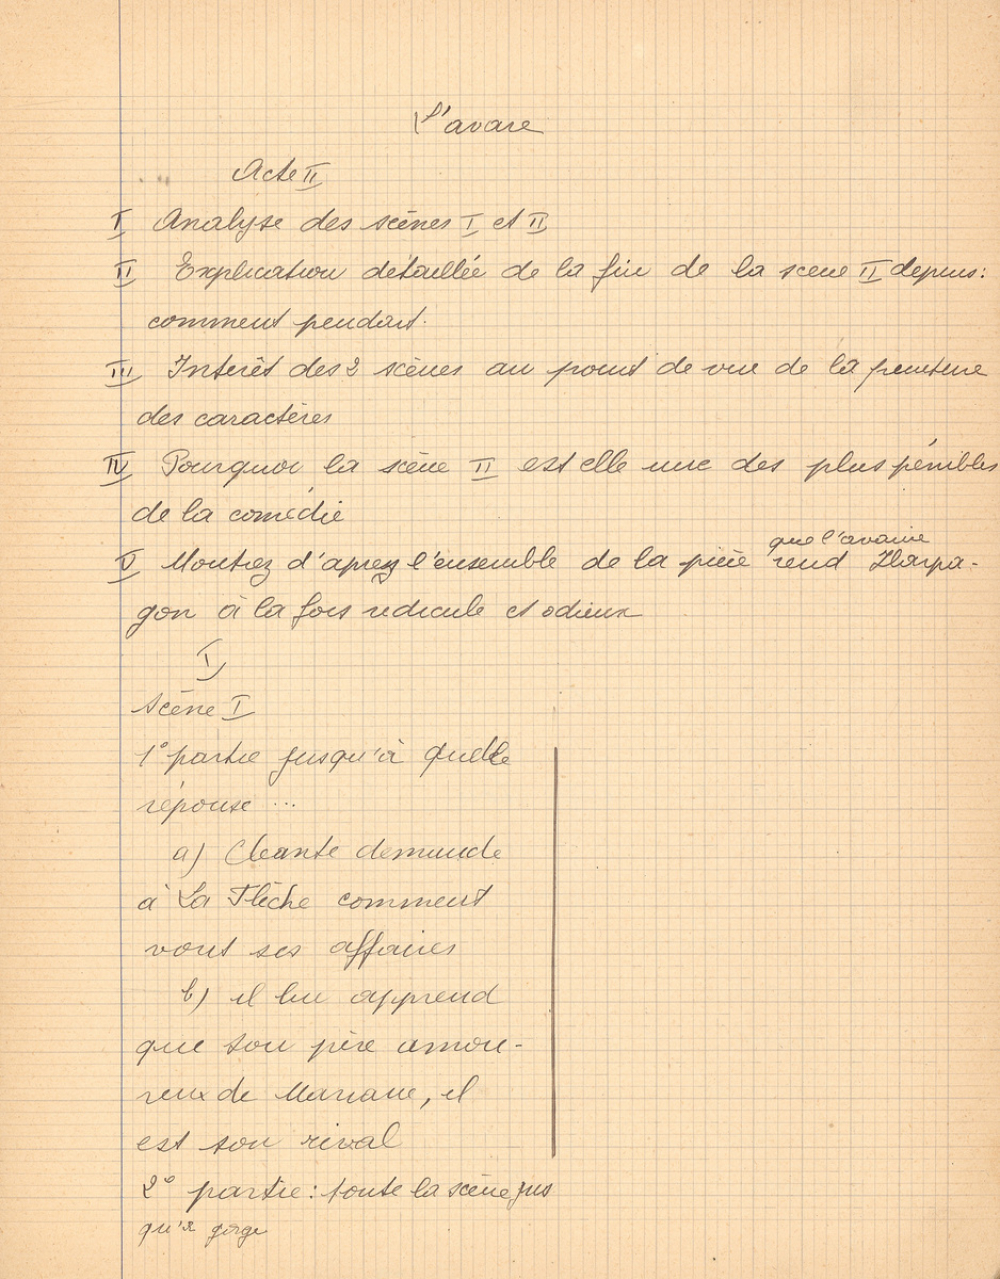 L'avare
Acte II
I Analyse des scènes I et II
II Explication détaillée de la fin de la scene II depuis:
comment pendart.
III Intérêt des 2 scènes au point de vue de la peinture
des caractères
IV Pourquoi la scène II est elle une des plus pénibles
de la comédie
que l'avarie
V Montrez d'aprez l'ensemble de la pièce rend Harpa-
gon à la fois ridicule et odieux
I
Scène I
1° partie jusqu'à quelle
réponse ...
a) Cléante demande
à La Flèche comment
vont ses affaires
b) il lui apprend
que son père amou-
reux de Mariane, il
est son rival
2° partie: toute la scène jus
qu'à gorge